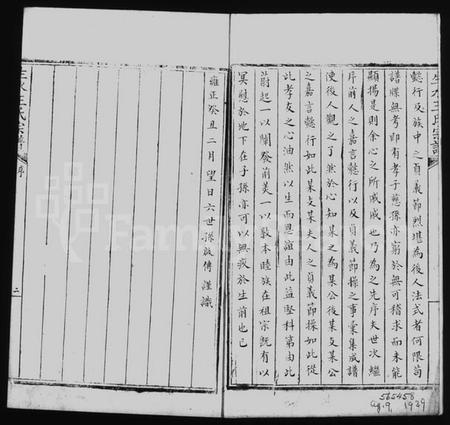 懿行及族中之貞義節烈堪為後人法式者何限苟
譜牒無考即有孝子慈孫亦窮於無可稽求而未能
顯揭是則余心之所戚戚也乃為之先序夫世次繼
序前人之嘉言懿行以及貞義節操之事彙集成譜
使後人觀之了然於心知某之為某公後某支某公
之嘉言懿行如此某支某夫人之貞義節操如此從
此孝友之心油然以生而恩誼由此益堅科第由此
蔚起一以闡發前美一以敦本睦族在祖宗既有以
冥慰於地下在子孫亦可以無疚於生前也已
雍正癸丑二月望日六世孫啟傅謹識
王氏宗譜
序
二
565458
1929